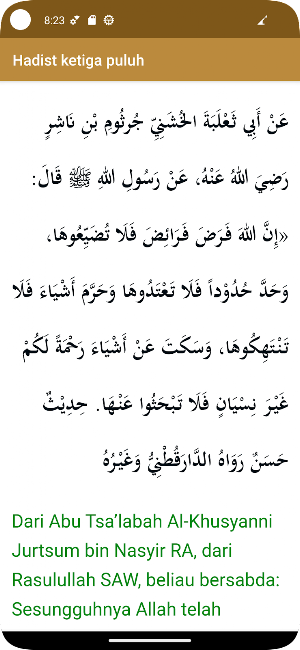 8:23
Hadist ketiga puluh
عَنْ أَبِي ثَعْلَبَةَ الْخُشَنِيِّ جُرْثُومِ بْنِ نَاشِرٍ
رَضِيَ اللهُ عَنْهُ، عَنْ رَسُولِ اللهِ ﷺ قَالَ:
«إِنَّ اللهَ فَرَضَ فَرَائِضَ فَلَا تُضَيِّعُوهَا،
وَحَدَّ حُدُوْداً فَلَا تَعْتَدُوهَا وَحَرَّمَ أَشْيَاءَ فَلَا
تَنْتَهِكُوهَا، وَسَكَتَ عَنْ أَشْيَاءَ رَحْمَةً لَكُمْ
غَيْرَ نِسْيَانٍ فَلَا تَبْحَثُوا عَنْهَا. حِدِيْثٌ
حَسَنٌ رَوَاهُ الدَّارَقُطْنِيُّ وَغَيْرُهُ
Dari Abu Tsa'labah Al-Khusyanni
Jurtsum bin Nasyir RA, dari
Rasulullah SAW, beliau bersabda:
Sesungguhnya Allah telah